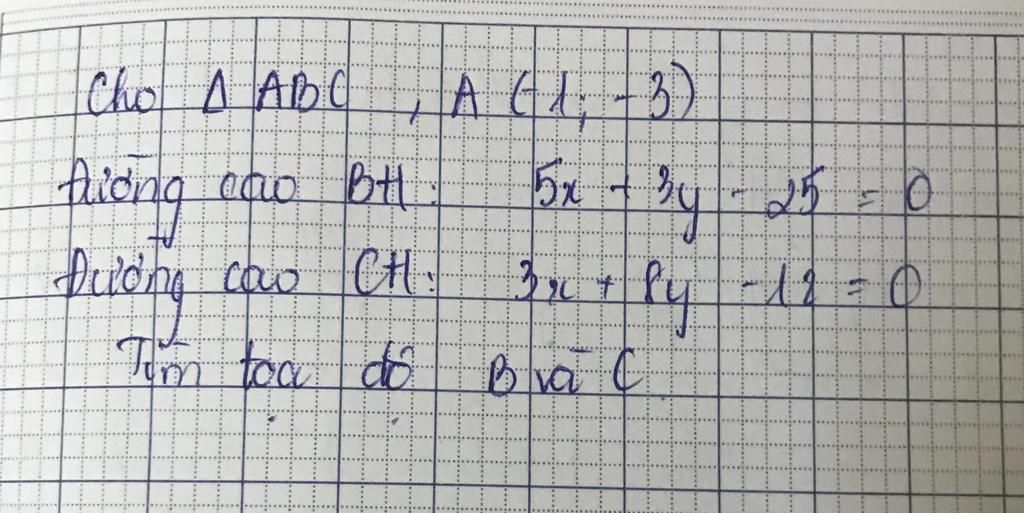 Cho Δ ABC , A (-1; -3)
Đường cao BH: 5x + 3y - 25 = 0
Đường cao CH: 3x + 8y - 12 = 0
Tìm tọa độ B và C